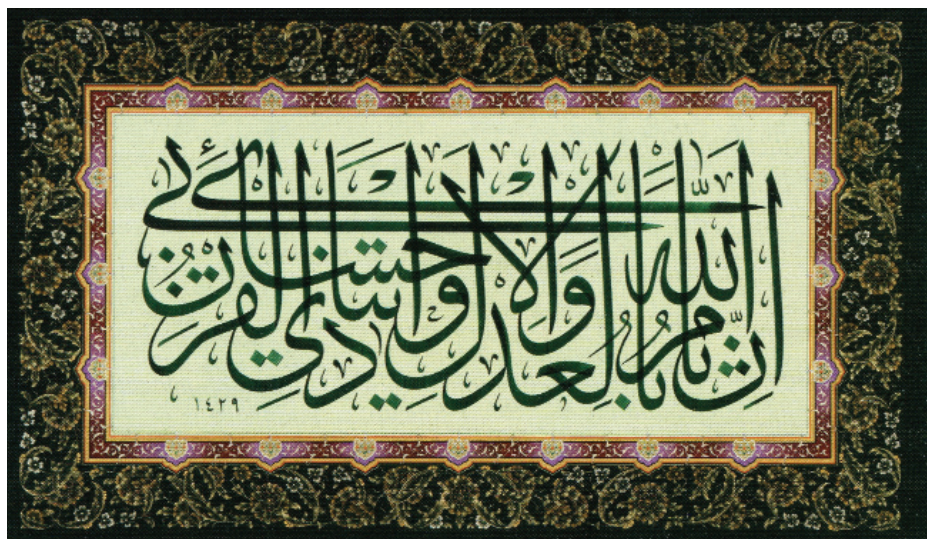 إِنَّ اللَّهَ يَأْمُرُ بِالْعَدْلِ وَالْإِحْسَانِ وَإِيتَاءِ ذِي الْقُرْبَىٰ
١٤٢٩